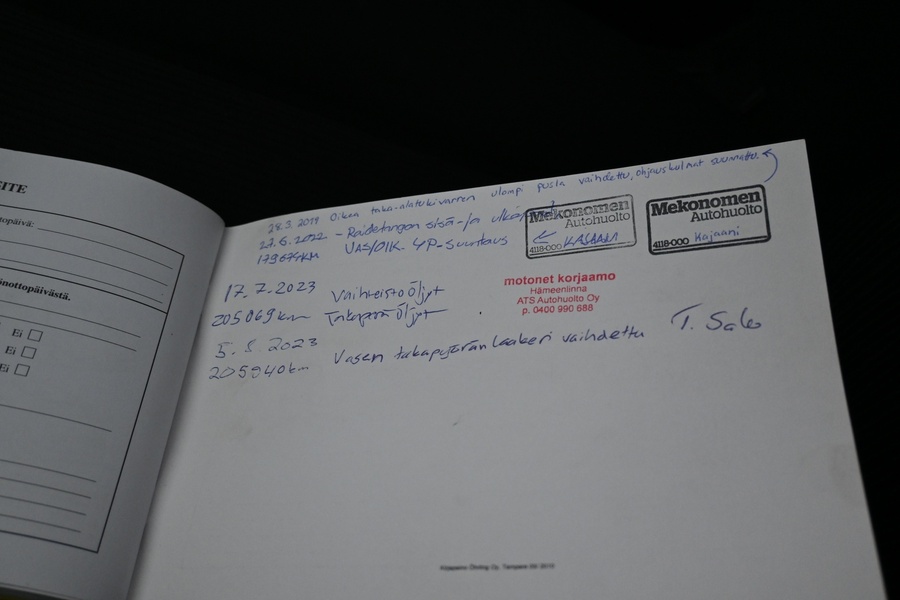 EITE
topäivä:
inottopäivästä.
Ei
Ei
Ei
28.3.2019 Oikea taka-alatukivarren ulompi pusla vaihdettu, ohjauskulmat suunnattu.
27.6.2022 - Raidetangon sisä-ja
179674KM VAS/OIK- 4P-suuntaus
Mekonomen
Autohuolto
4118-000 KAJAANI
Mekonomen
Autohuolto
4118-000 Kajaani
17.7.2023 Vaihteistoöljyt
205069km Takaperä Öljyt
motonet korjaamo
Hämeenlinna
ATS Autohuolto Oy
p. 0400 990 688
5.8.2023
205940km Vasen takapyöränlaakeri vaihdettu T. Salo
Kirjapaino Öhrling Oy, Tampere